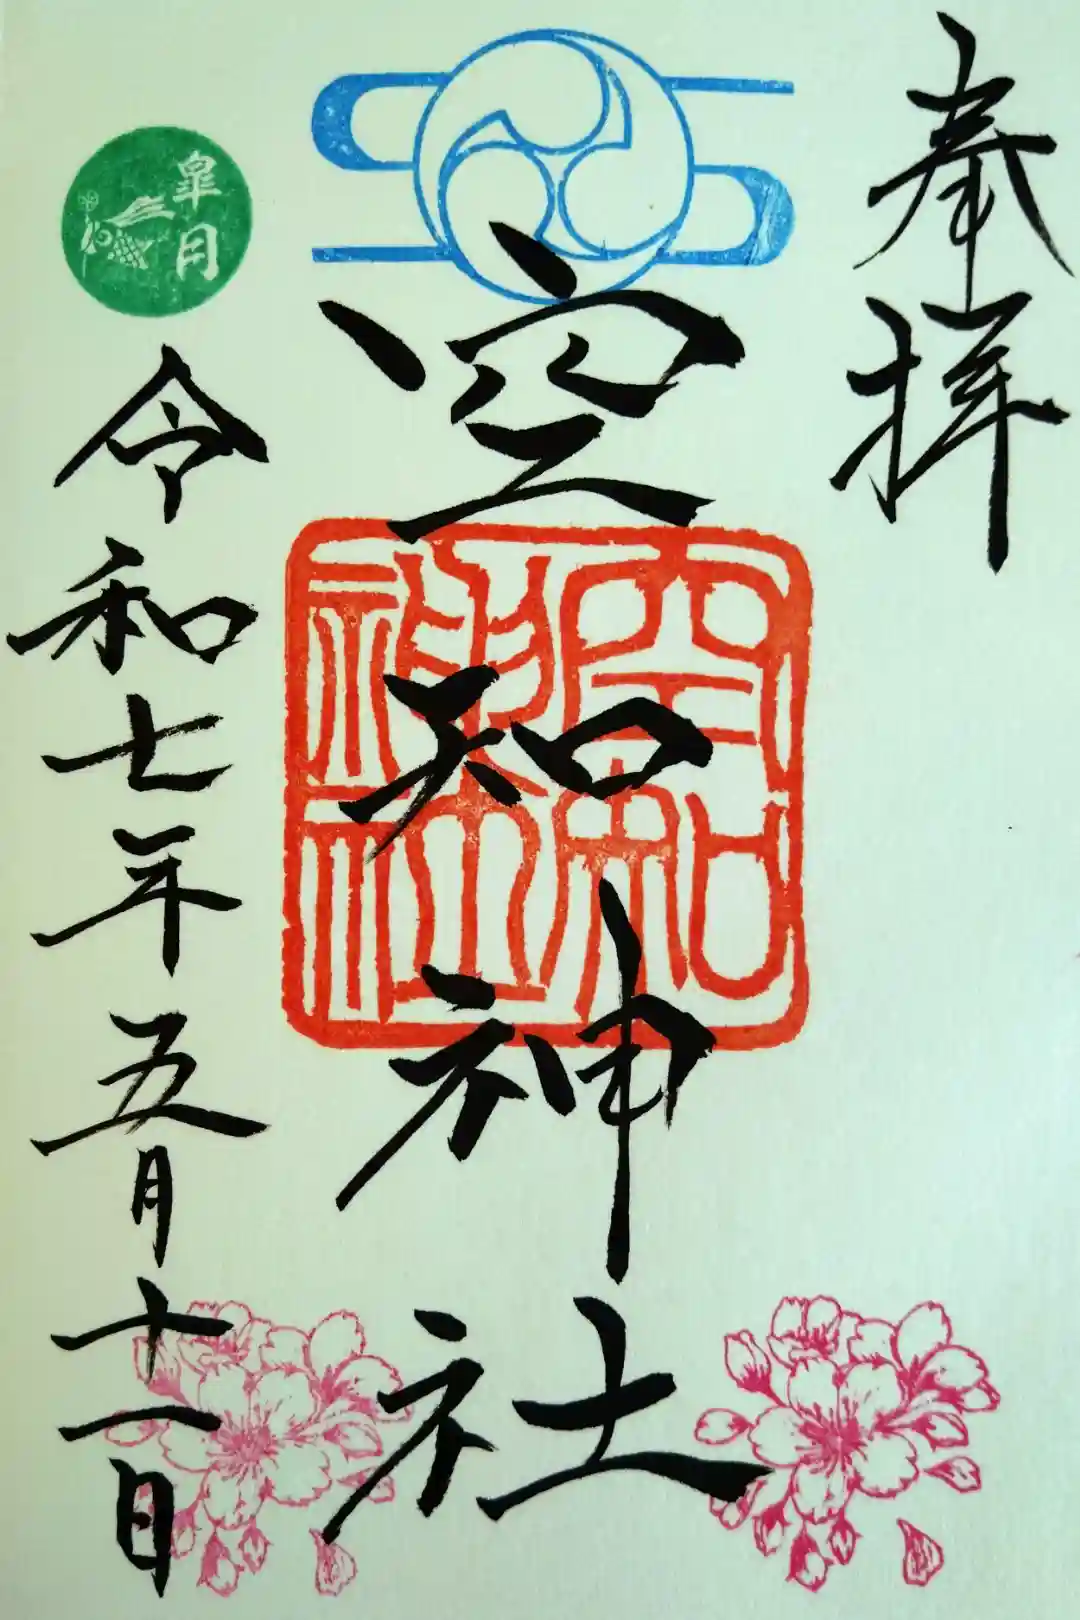 奉拝
空知神社
空知神社
令和七年五月十一日
皐月